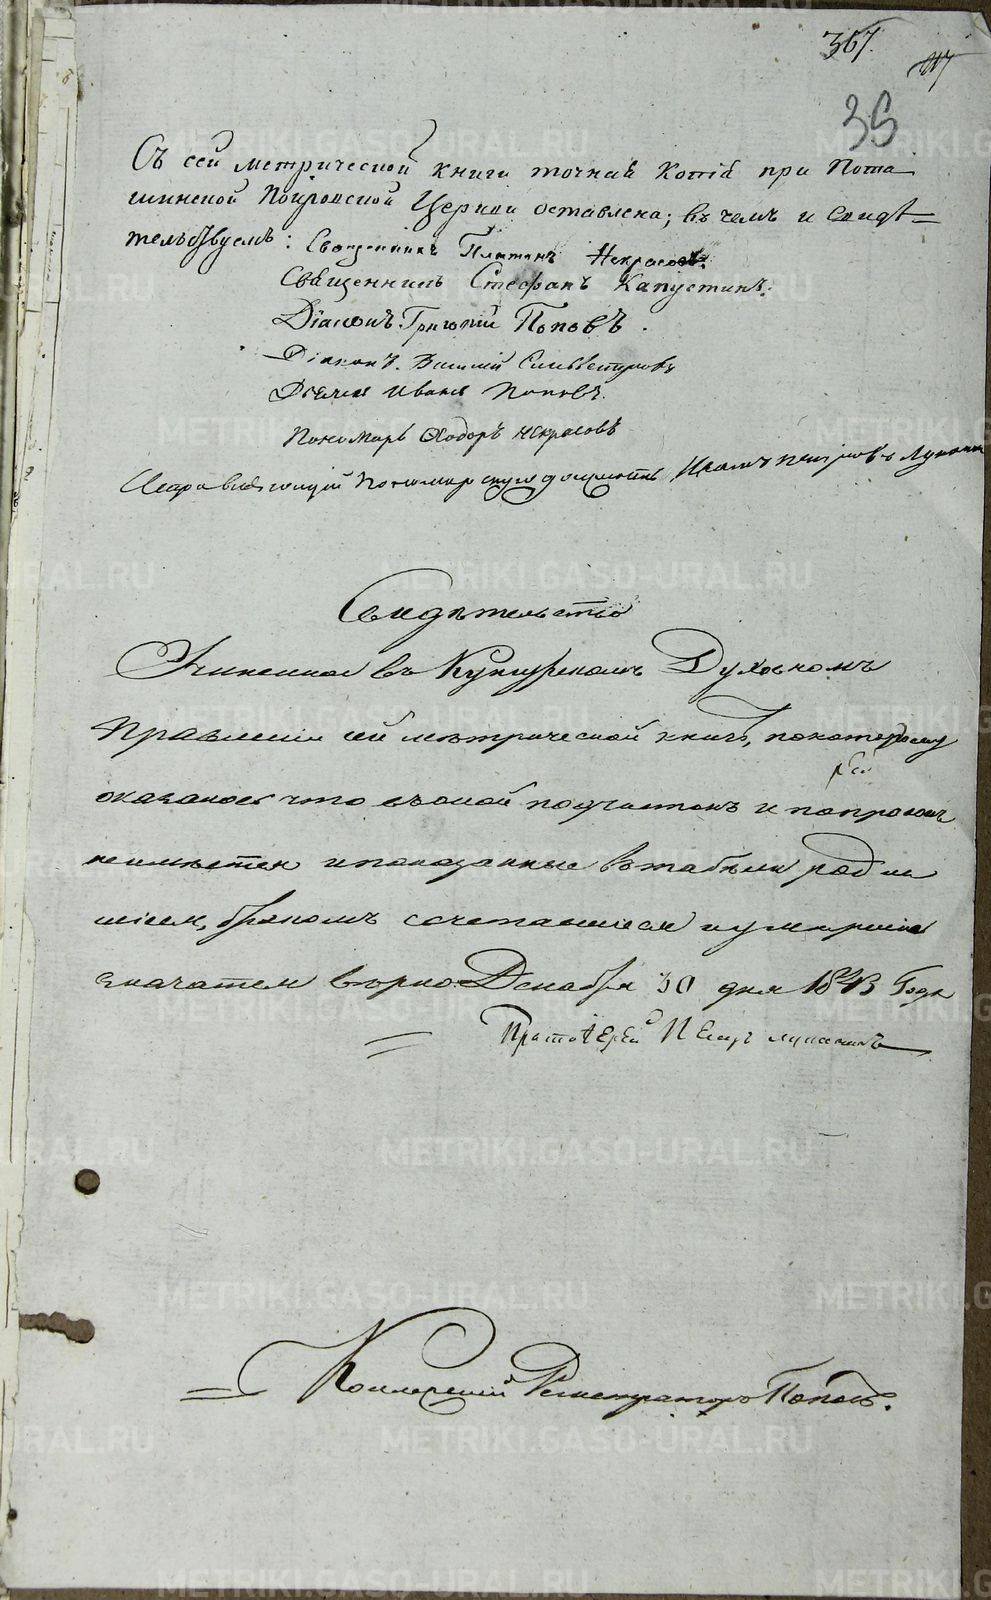 367.
39
Съ сей метрической книги точная копія при Пота
шинской Покровской Церкви оставлена; въ чемъ и свидѣ=
тельствуемъ: Священникъ Платонъ Некрасовъ.
Священникъ Стефанъ Капустинъ.
Діаконъ Григорій Поповъ.
Діаконъ Василій Сильвестровъ
Дьячекъ Иванъ Поповъ.
Пономарь Ѳеодоръ Некрасовъ
Исправляющій Пономарскую должность Иванъ
Свидѣтельство
Учиненное въ Кунгурскомъ Духовномъ
Правленіи сей метрической книгѣ, покоторому
оказалось что въ оной подчистокъ и поправокъ
неимѣется и показанные въ табели родив
шіеся, бракомъ сочетавшіеся и умершіе
значатся вѣрно. Декабря 30 дня 1843 Года
Протоіерей Петръ Луканинъ
Коллежскій Регистраторъ Поповъ.
METRIKI.GASO-URAL.RU